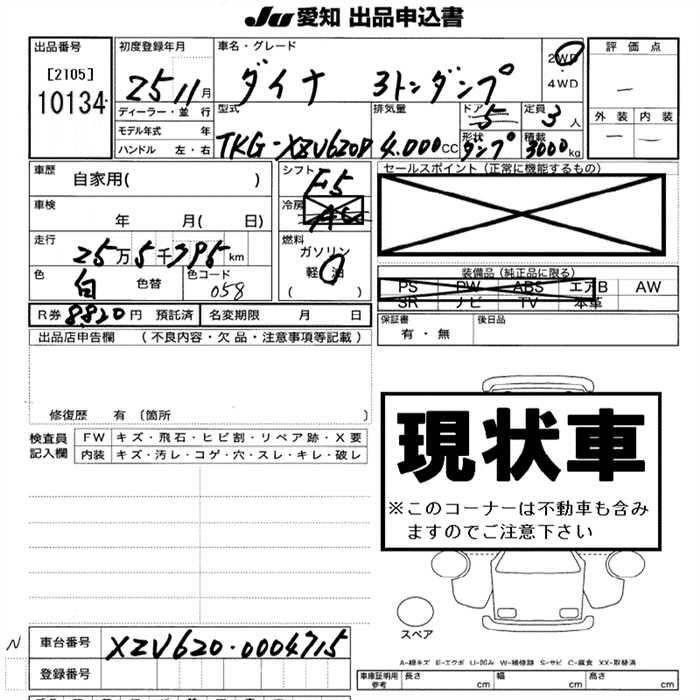 JU 愛知 出品申込書
出品番号
[2105]
10134
初度登録年月
25 11 月
車名・グレード
ダイナ 3トンダンプ
2WD
4WD
評価点
－
外装 内装
－ －
ディーラー・並行
モデル年式 年
ハンドル 左・右
型式
TKG-XZV620D
排気量
4.000 CC
ドア
5
形状
ダンプ
定員
3 人
積載
3000 kg
車歴
自家用( )
車検
年 月( 日)
走行
25万5千795 km
色
白
色替
色コード
058
シフト
F5
冷房
AC
燃料
ガソリン
軽油
( )
セールスポイント（正常に機能するもの）
装備品（純正品に限る）
PS PW ABS エアB AW
SR ナビ TV 本革
R券 8820 円 預託済 名変期限 月 日
保証書
有・無
後日品
出品店申告欄 （不良内容・欠品・注意事項等記載）
修復歴 有〔箇所 〕
検査員
記入欄
FW キズ・飛石・ヒビ割・リペア跡・X要
内装 キズ・汚レ・コゲ・穴・スレ・キレ・破レ
現状車
※このコーナーは不動車も含み
ますのでご注意下さい
スペア
N
車台番号 XZV620-0004715
登録番号
A-線キズ E-エクボ U-凹み W-補修跡 S-サビ C-腐食 XX-交換済
車庫証明用
参考
長さ cm 幅 cm 高さ cm